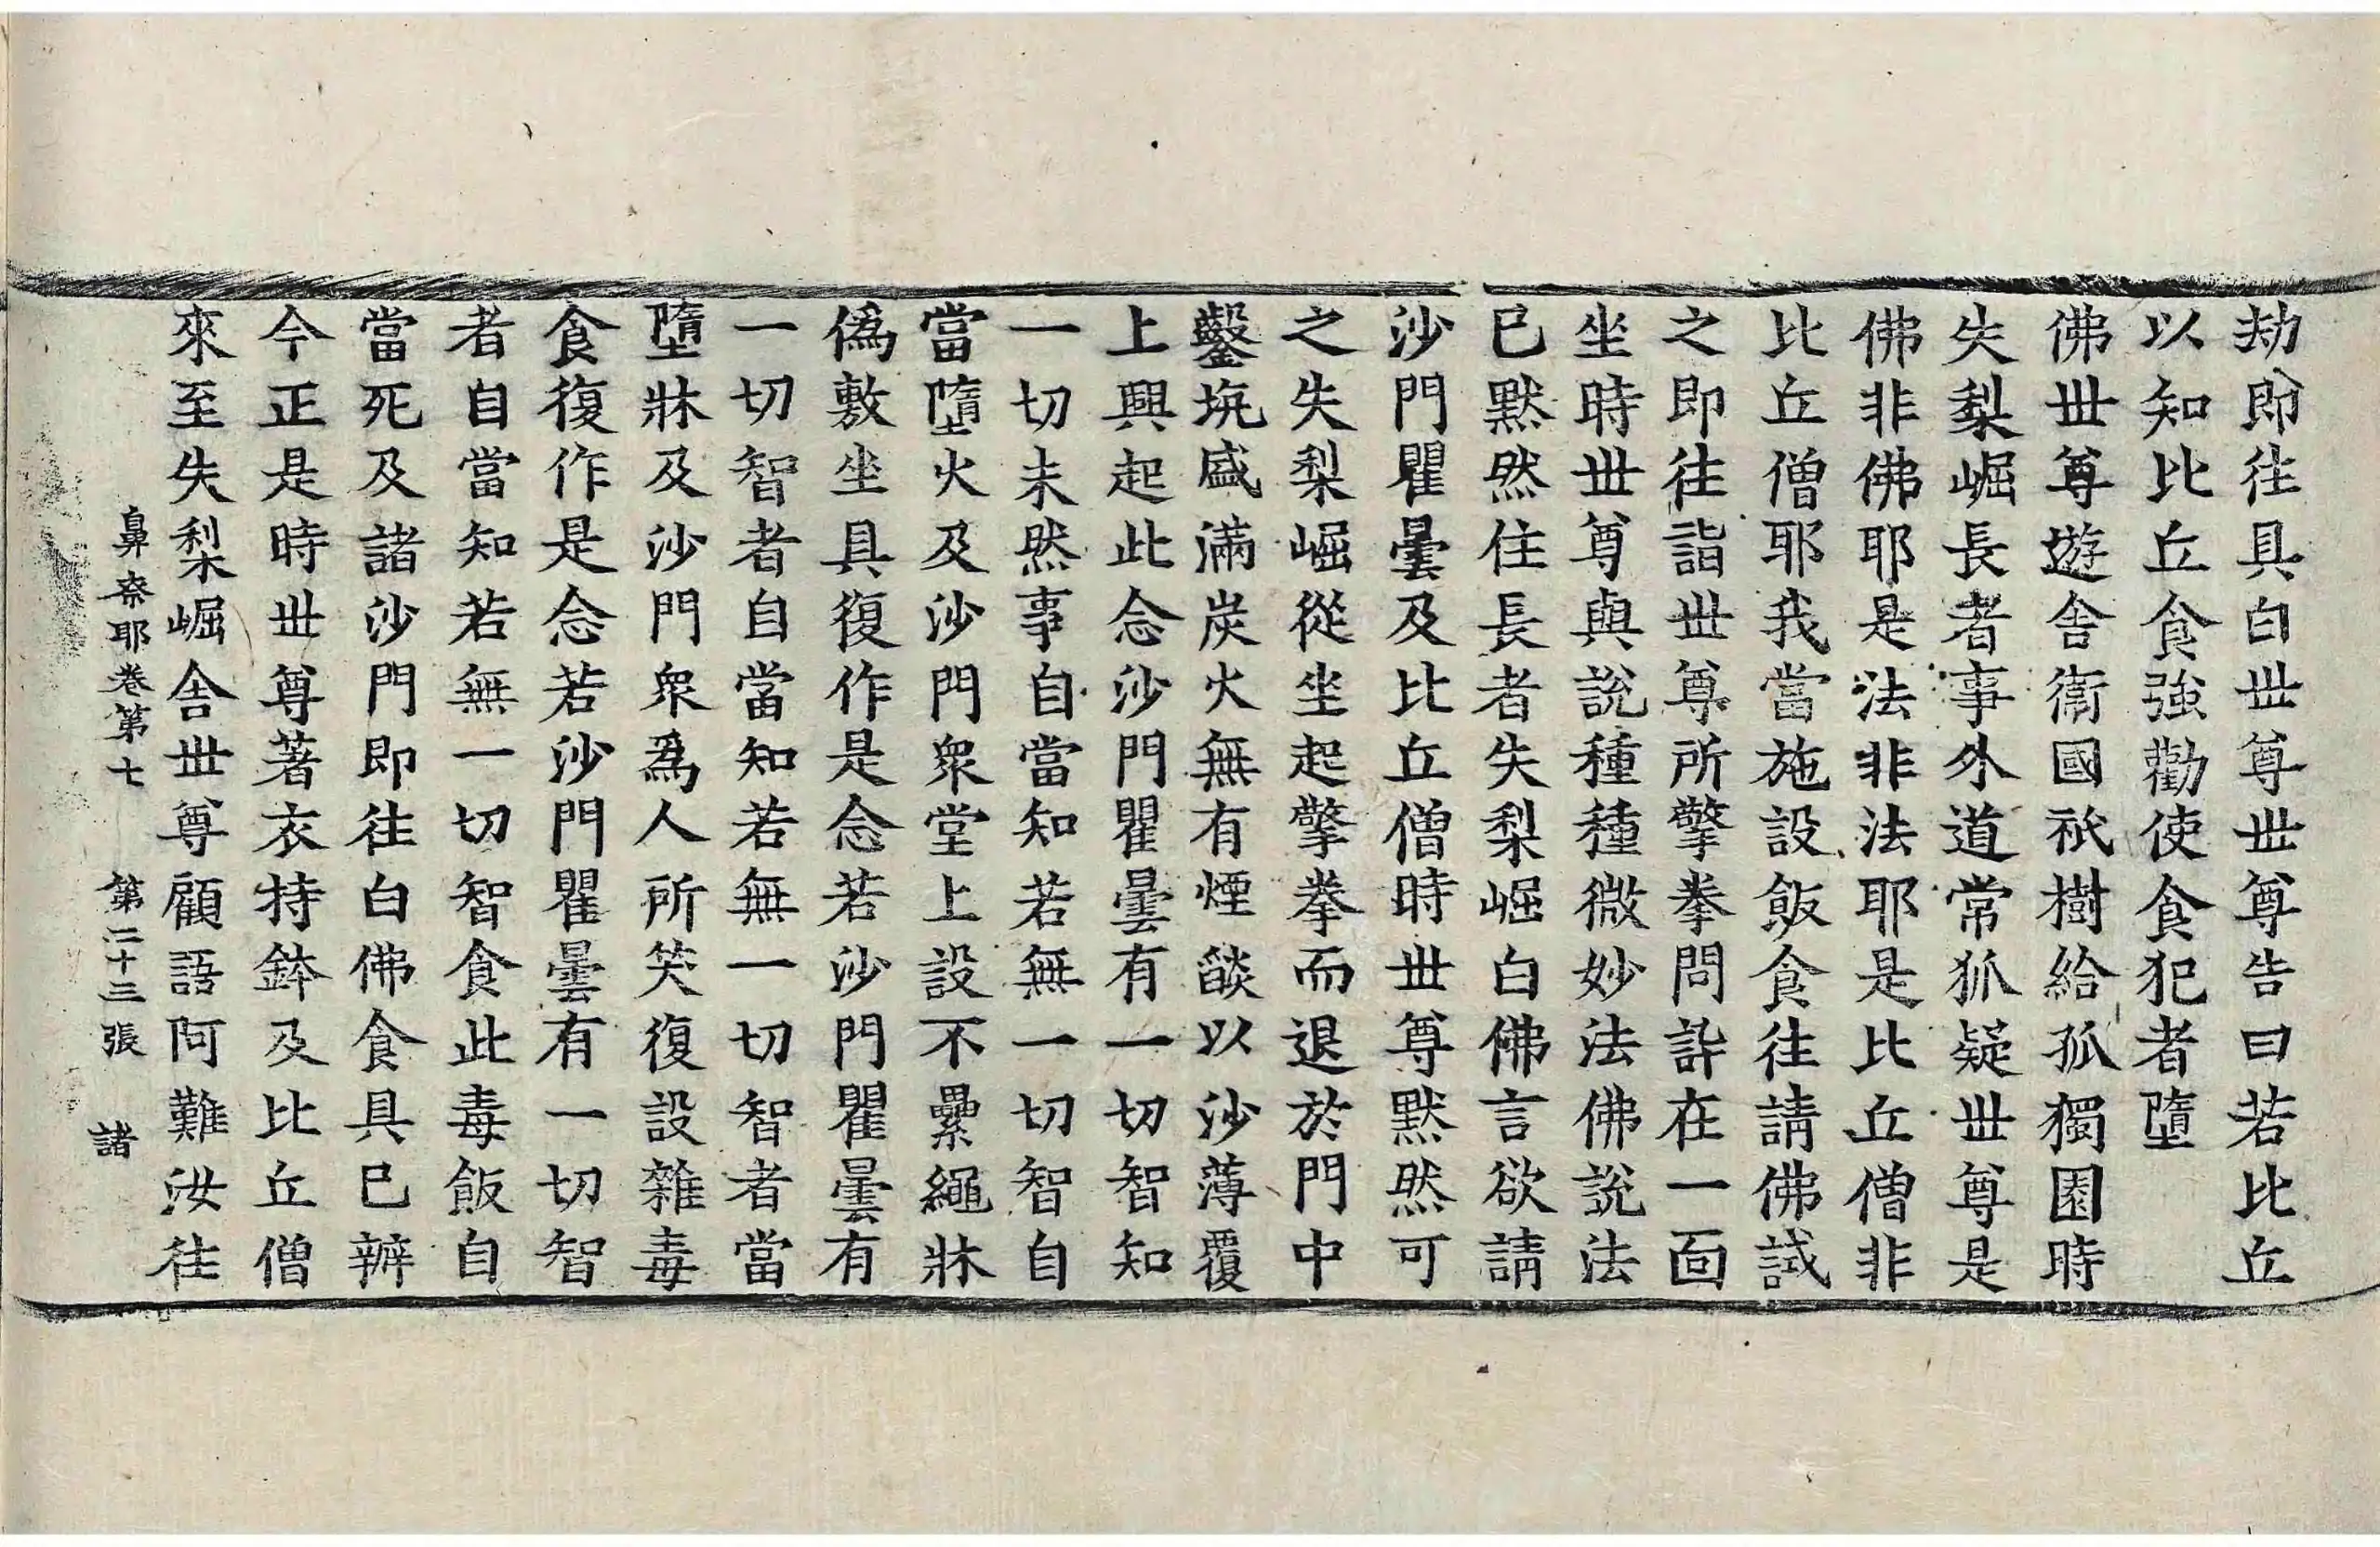 劫即往具白世尊世尊告曰若比丘
以知比丘食強勸使食犯者墮
佛世尊遊舍衛國祇樹給孤獨園時
失梨崛長者事外道常狐疑世尊是
佛非佛耶是法非法耶是比丘僧非
比丘僧耶我當施設飯食往請佛試
之即往詣世尊所擎拳問訊在一面
坐時世尊與說種種微妙法佛說法
已默然住長者失梨崛白佛言欲請
沙門瞿曇及比丘僧時世尊默然可
之失梨崛從坐起擎拳而退於門中
鑿坑盛滿炭火無有煙燄以沙薄覆
上興起此念沙門瞿曇有一切智知
一切未然事自當知若無一切智自
當墮火及沙門眾堂上設不纍繩牀
偽敷坐具復作是念若沙門瞿曇有
一切智者自當知若無一切智者當
墮牀及沙門眾為人所笑復設雜毒
食復作是念若沙門瞿曇有一切智
者自當知若無一切智食此毒飯自
當死及諸沙門即往白佛食具已辦
今正是時世尊著衣持鉢及比丘僧
來至失梨崛舍世尊顧語阿難汝往
鼻奈耶卷第七 第二十三張 諸